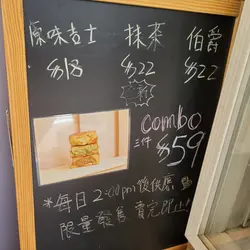 原味吉士 抹茶 伯爵
$18 $22 $22
新
combo
三件 $59
*每日 2:00pm 後供應
限量發售 賣完即止